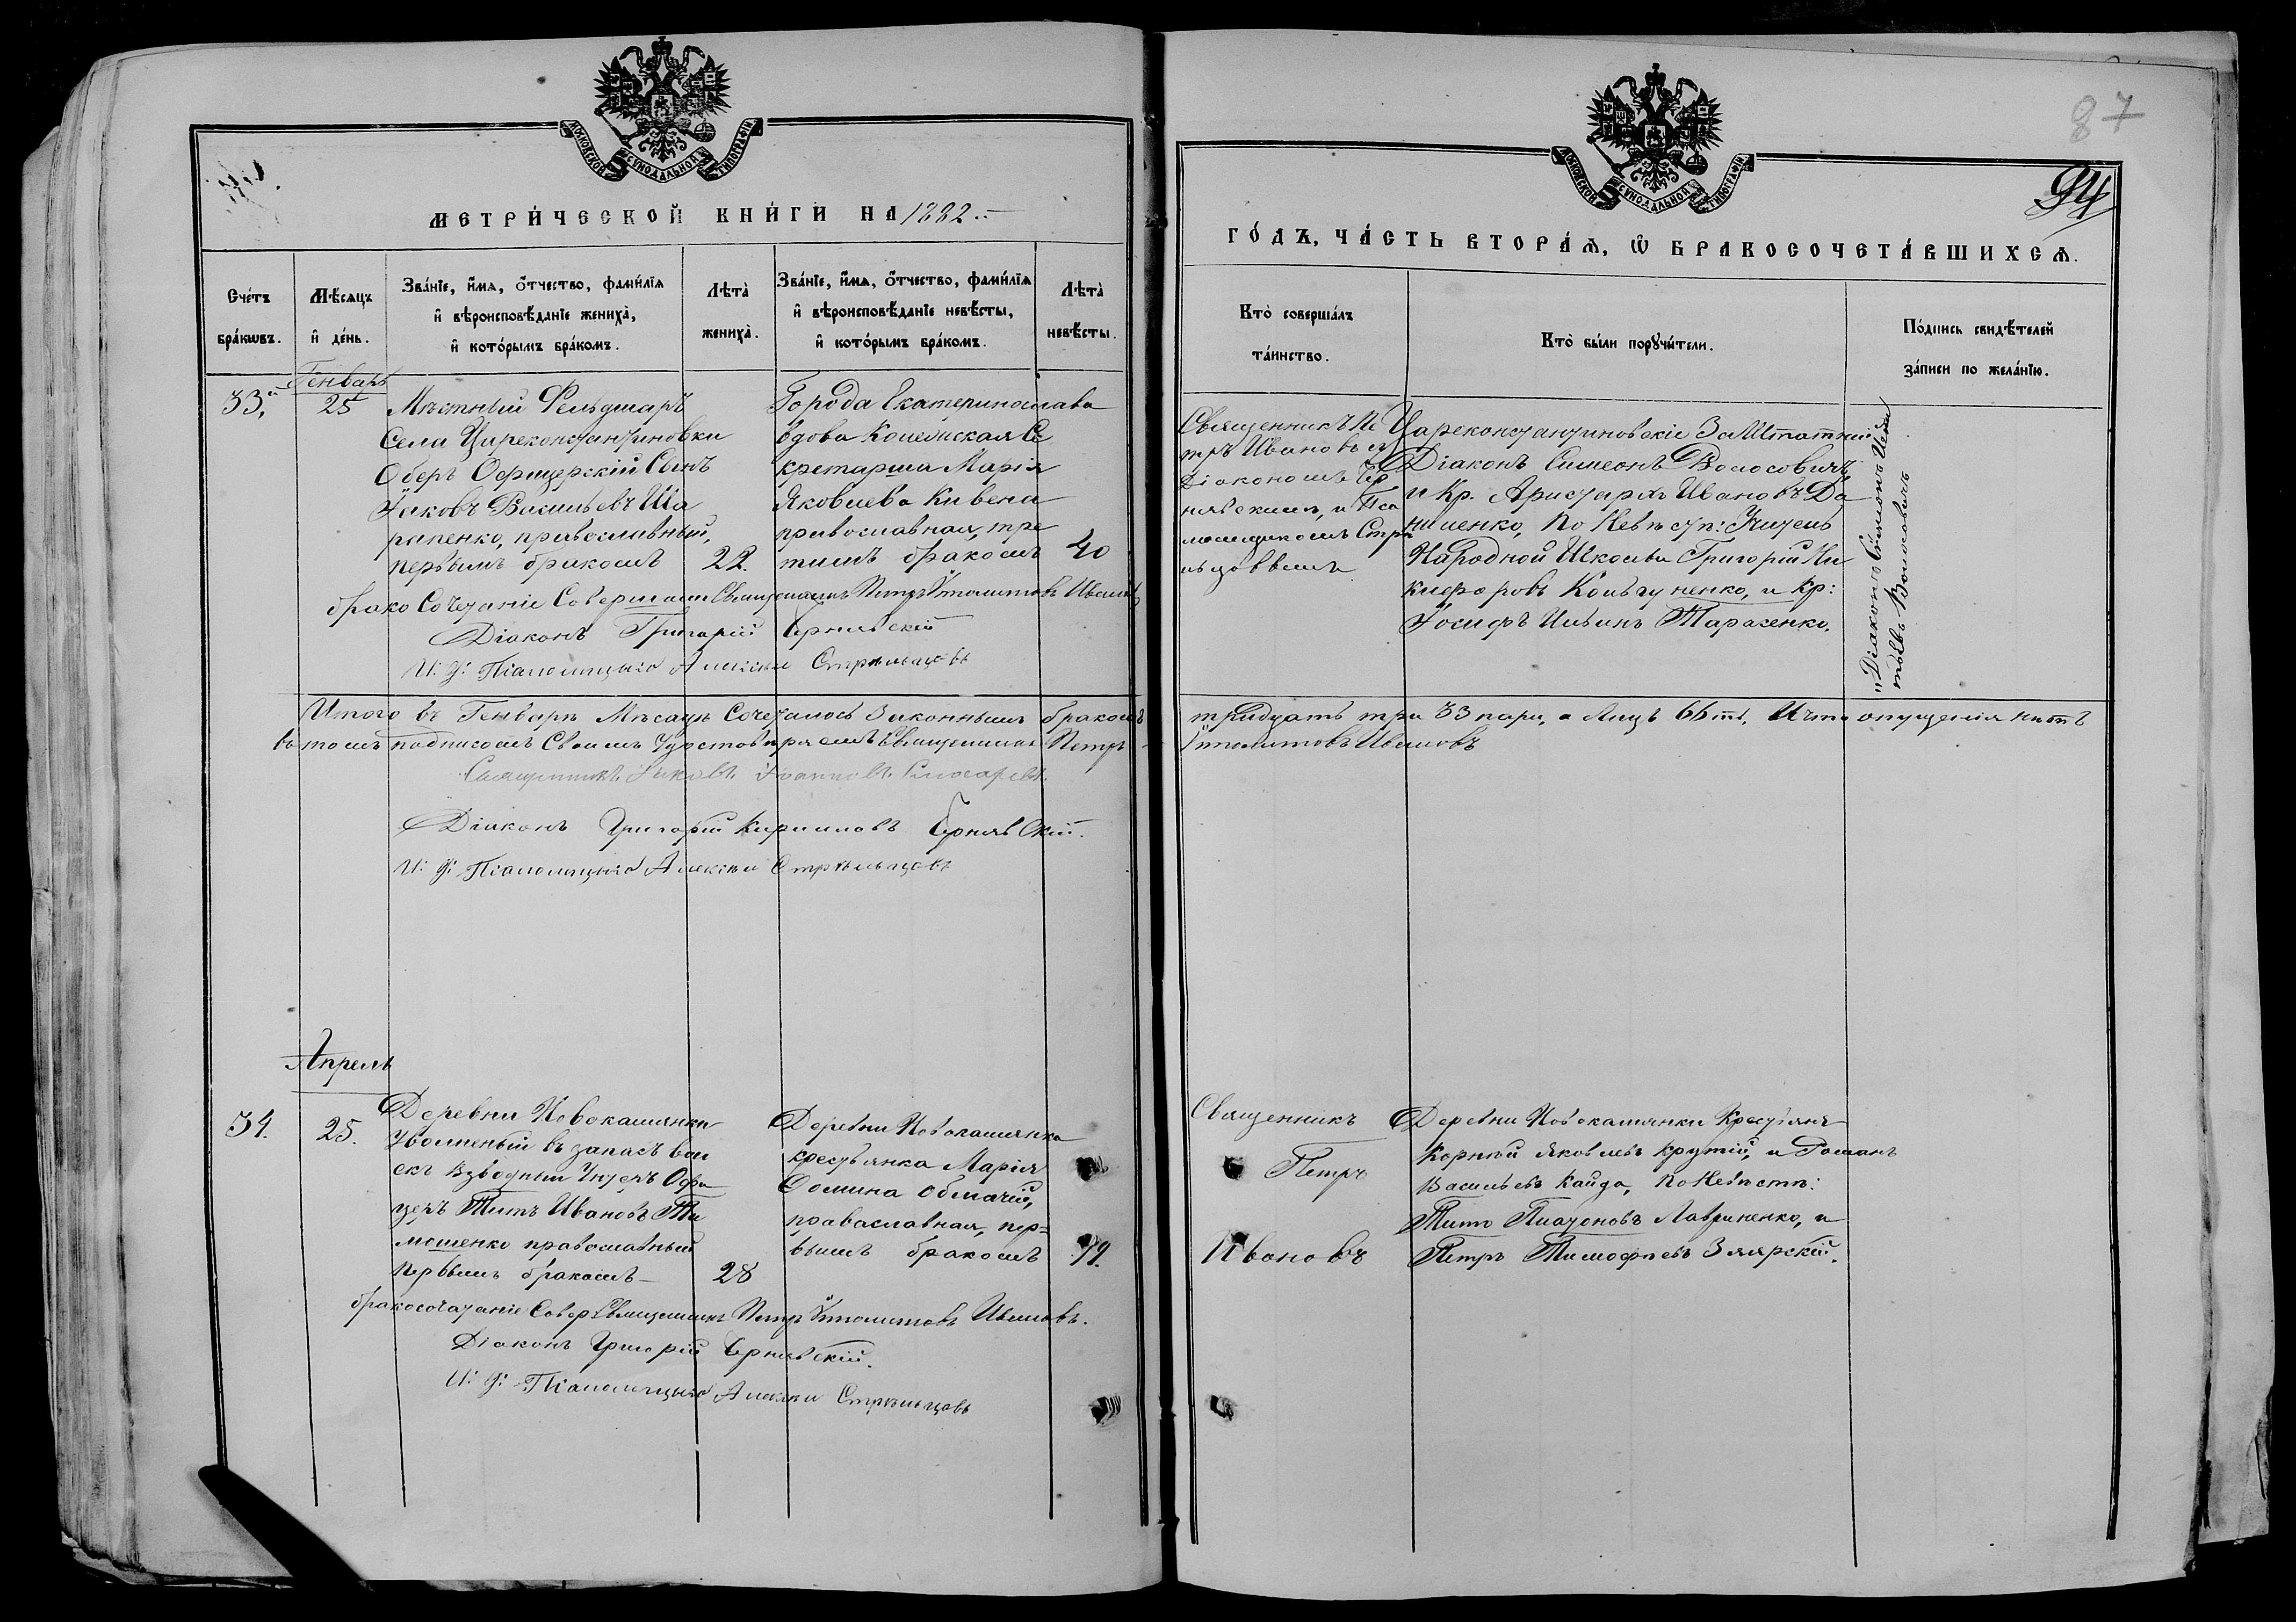 МОСКОВСКОЙ СѴНОДАЛЬНОЙ ТИПОГРАФІИ
МЕТРИ́ЧЕСКОЙ КНИ́ГИ НА 1882.
Сче́тъ бра́кѡвъ.
Мѣ́сяцъ и҆ де́нь.
Зва́нїе, и҆́мѧ, ѻ҆́тчество, фами́лїѧ
и҆ вѣроисповѣ́данїе жениха̀,
и҆ кото́рымъ бра́комъ.
Лѣта̀ жениха̀.
Зва́нїе, и҆́мѧ, ѻ҆́тчество, фами́лїѧ
и҆ вѣроисповѣ́данїе невѣ́сты,
и҆ кото́рымъ бра́комъ.
Лѣта̀ невѣ́сты.
Генварь
33,
25
Мѣстный Фельдшаръ
Села Цареконстантиновки
Оберъ Офицерскій Сынъ
Іаковъ Васильевъ Ша
рапенко, православный,
первымъ бракомъ
22.
Города Екатеринослава
вдова Колежская Се
кретарша Марія
Яковлева Кивена
православная, тре
тимъ бракомъ
40
брако Сочетаніе Совершали Священникъ Петръ Ипполитовъ Ивановъ
Діаконъ Григорій Чернявскій
И: д: Псаломщыка Алексѣй Стрѣльцовъ
Итого въ Генварѣ Мѣсяцѣ Сочеталось Законнымъ бракомъ
въ томъ подписомъ Своимъ Удостовѣряемъ Священникъ Петръ
Священникъ Іаковъ Іоанновъ Слюсаревъ
Діаконъ Григорій Кириловъ Чернявскій.
И: д: Псаломщыка Алексѣй Стрѣльцовъ
Апрель
34.
25.
Деревни Новокаменки
Уволеный въ запасъ вой
скъ Взводный Унтеръ Офи
церъ Титъ Ивановъ Ти
мошенко православный
первымъ бракомъ
28
Деревни Новокаменки
крестьянка Марія
Фомина
православная, пер=
вымъ бракомъ
19.
бракосочатаніе Совер: Священникъ Петръ Ипполитовъ Ивановъ.
Діаконъ Григорій Чернявскій.
И: д: Псаломщыка Алексѣй Стрѣльцовъ
87
94
МОСКОВСКОЙ СѴНОДАЛЬНОЙ ТИПОГРАФІИ
ГО́ДЪ, ЧА́СТЬ ВТОРА́Ѧ, Ѡ҆ БРАКОСОЧЕТА́ВШИХСѦ.
Кто̀ соверша́лъ
та́инство.
Кто̀ бы́ли порꙋчи́тели.
По́дпись свидѣ́телей
за́писи по жела́нїю.
Священникъ Пе
тръ Ивановъ съ
Діакономъ Чер
нявскимъ, и Пса
ломщикомъ Стрѣ
льцовымъ
Цареконстантиновскіе Заштатный
Діаконъ Симеонъ Волосовичъ
и Кр. Аристархъ Ивановъ Да
ниленко, по Невѣстѣ: Учитель
Народной Школы Григорій Ни
кифоровъ Колыгуненко, и Кр:
Іосифъ Ильинъ Тарасенко.
„Діаконъ Сѵмеонъ
Волосовичъ
тридцать три 33 пары, а лицъ 66ть. И что опущенія нѣтъ
Ипполитовъ Ивановъ
Священникъ
Петръ
Ивановъ
Деревни Новокаменки Крестьяне
Корнѣй Яковлевъ Крутій, и Романъ
Васильевъ Кайда, по Невѣстѣ:
Титъ Платоновъ Лавриненко, и
Петръ Тимофѣевъ Заярскій.